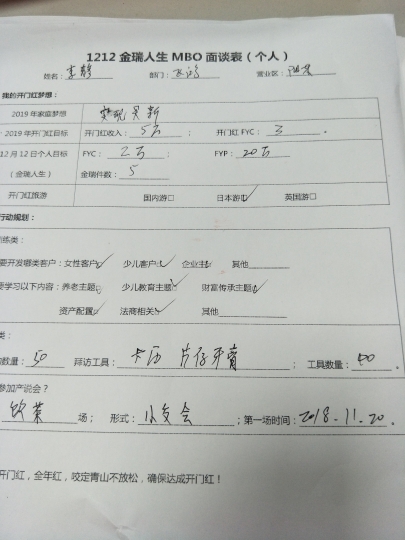 1212 金瑞人生 MBO 面谈表（个人）
姓名：李静 部门： 营业区：
我的开门红梦想：
2019 年家庭梦想 实现
2019 年开门红目标 开门红收入：5万 开门红 FYC：3 。
12月12日个人目标 FYC：2万 FYP：20万
（金瑞人生） 金瑞件数：5
开门红旅游 国内游□ 日本游☑ 英国游□
行动规划：
训练类：
要开发哪类客户：女性客户☑ 少儿客户☑ 企业主☑ 其他
要学习以下内容：养老主题☑ 少儿教育主题☑ 财富传承主题☑
资产配置☑ 法商相关☑ 其他
类：
数量：50 拜访工具：卡历 工具数量：40 。
参加产说会？
场； 形式：小交会 ；第一场时间：2018.11.20 。
开门红，全年红，咬定青山不放松，确保达成开门红！